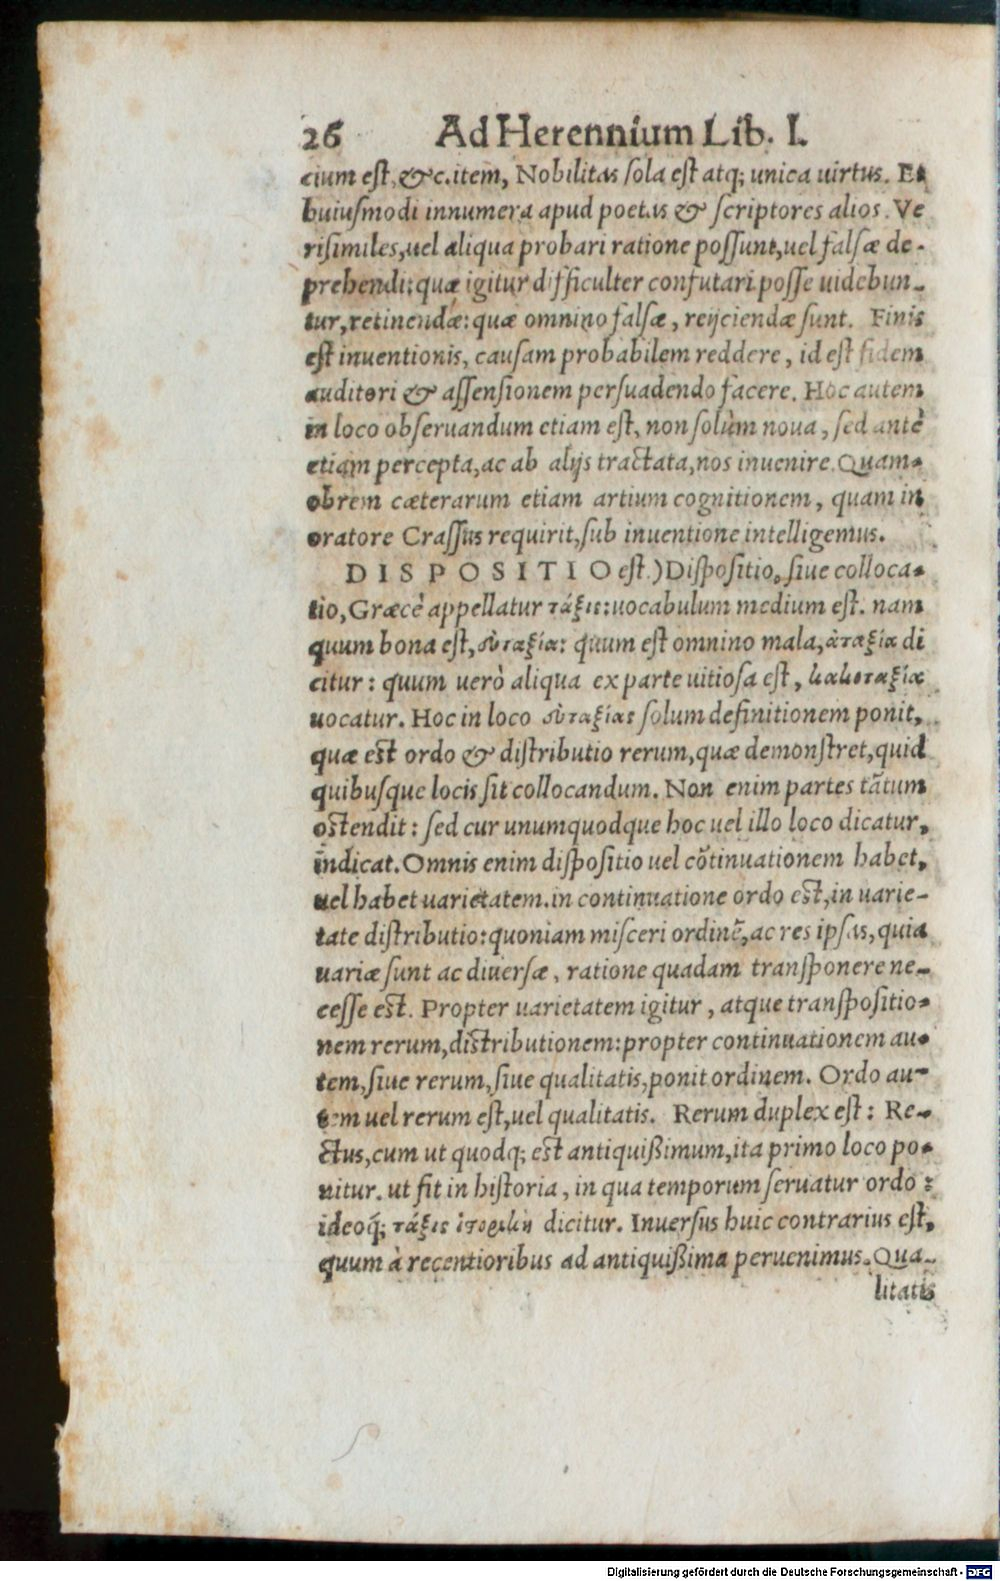 26 Ad Herennium Lib. I.
cium est, &c. item, Nobilitas sola est atq; unica uirtus. Et
huiusmodi innumera apud poetas & scriptores alios. Ve
risimiles, uel aliqua probari ratione possunt, uel falsæ de-
prehendi: quæ igitur difficulter confutari posse uidebun-
tur, retinendæ: quæ omnino falsæ, reijciendæ sunt. Finis
est inuentionis, causam probabilem reddere, id est fidem
auditori & assensionem persuadendo facere. Hoc autem
in loco obseruandum etiam est, non solùm noua, sed antè
etiam percepta, ac ab alijs tractata, nos inuenire. Quam-
obrem cæterarum etiam artium cognitionem, quam in
oratore Crassus requirit, sub inuentione intelligemus.
DISPOSITIO est.) Dispositio, siue colloca-
tio, Græcè appellatur τάξις: uocabulum medium est. nam
quum bona est, ἐυταξία: quum est omnino mala, ἀταξία di
citur: quum uerò aliqua ex parte uitiosa est, κακοταξία
uocatur. Hoc in loco ἐυταξίας solum definitionem ponit,
quæ est ordo & distributio rerum, quæ demonstret, quid
quibusque locis sit collocandum. Non enim partes tãtum
ostendit: sed cur unumquodque hoc uel illo loco dicatur,
indicat. Omnis enim dispositio uel cõtinuationem habet,
uel habet uarietatem. in continuatione ordo est, in uarie-
tate distributio: quoniam misceri ordinẽ, ac res ipsas, quia
uariæ sunt ac diuersæ, ratione quadam transponere ne-
cesse est. Propter uarietatem igitur, atque transpositio-
nem rerum, distributionem: propter continuationem au-
tem, siue rerum, siue qualitatis, ponit ordinem. Ordo au-
tem uel rerum est, uel qualitatis. Rerum duplex est: Re-
ctus, cum ut quodq; est antiquißimum, ita primo loco po-
nitur. ut fit in historia, in qua temporum seruatur ordo:
ideoq́; τάξις ἱστορικὴ dicitur. Inuersus huic contrarius est,
quum à recentioribus ad antiquißima peruenimus. Qua-
litatis
Digitalisierung gefördert durch die Deutsche Forschungsgemeinschaft - DFG